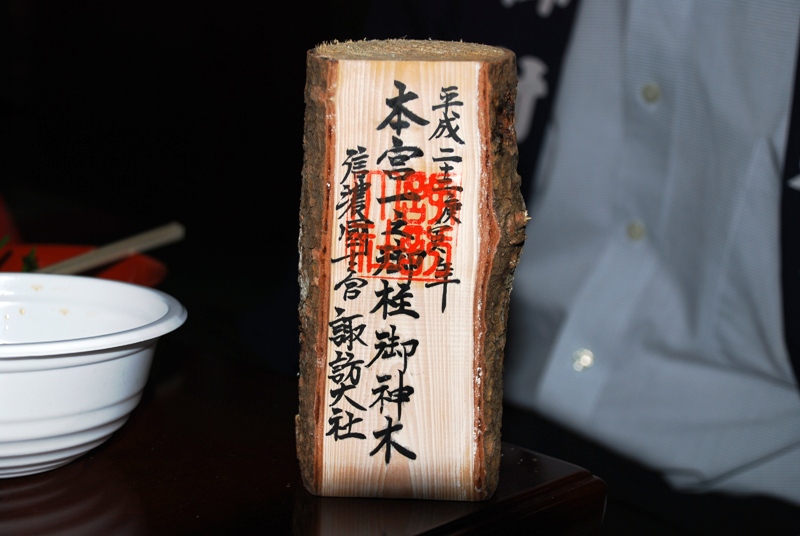 平成二十二庚寅年
本宮一之御柱御神木
信濃國一之宮 諏訪大社